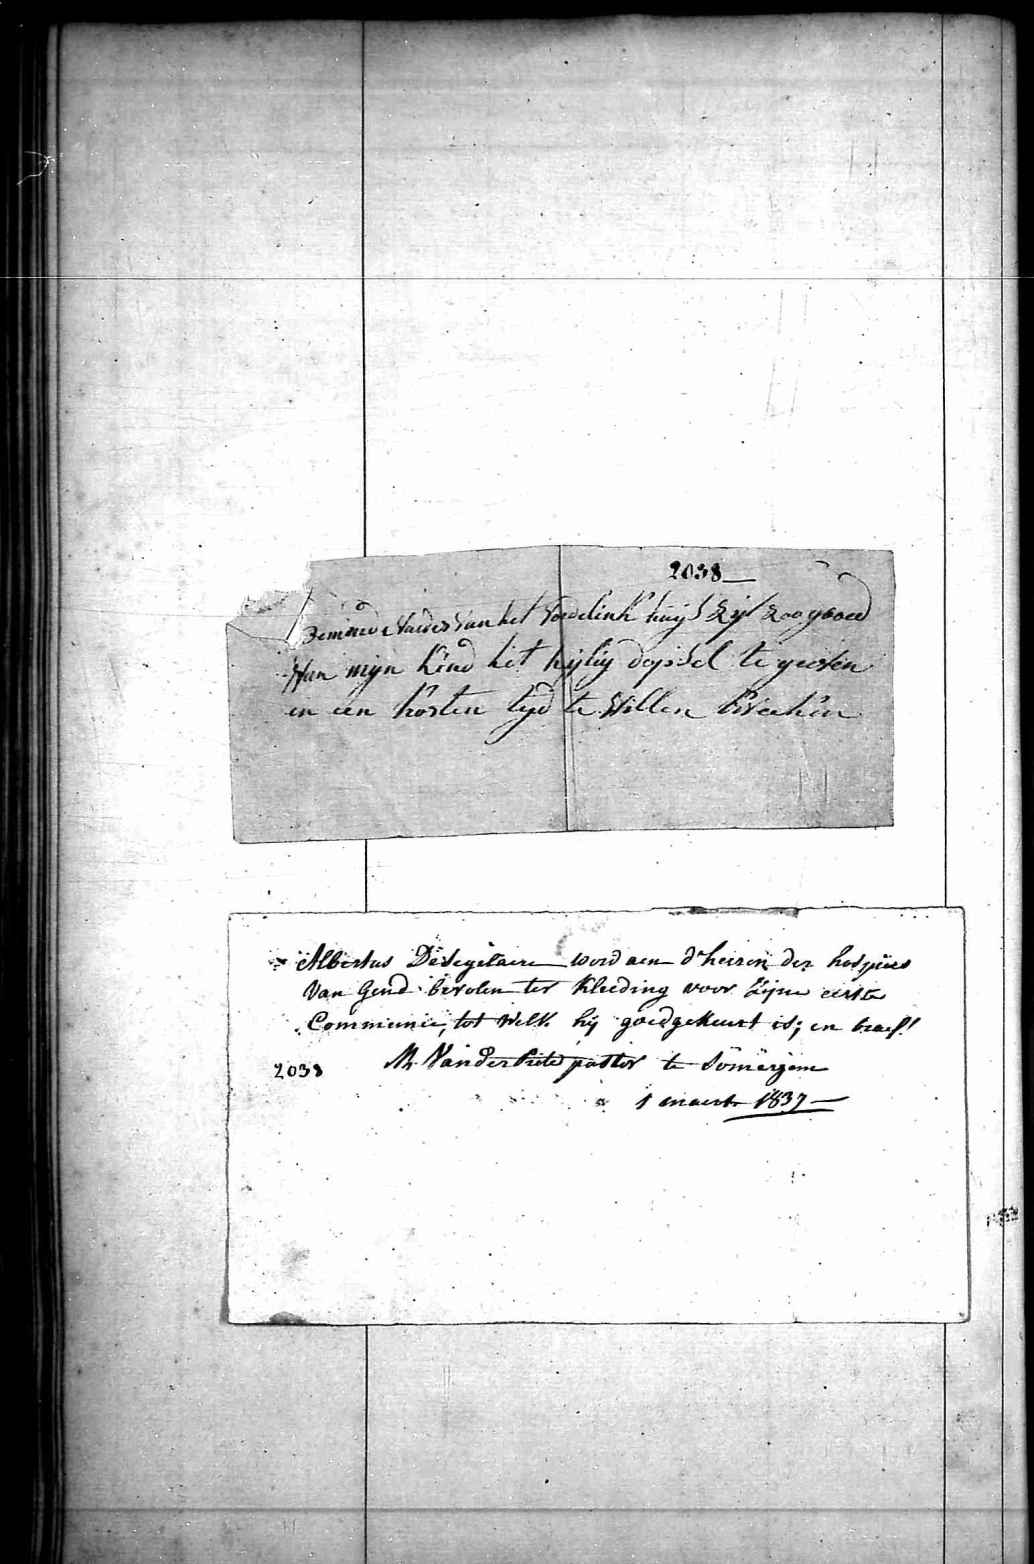 2038
Beminde Vaeder van het Vondelink huijs zijt zoo goed
Aan mijn kind het hijlig dopsel te geeven
en een korten tijd te Willen kweeken
Albertus Desegelaere word aen d'heeren der hospices
Van Gend bevolen ter kleeding voor Zijne eerste
Communie, tot welk hij goedgekeurt is; en braef!
2038 pastor te Somergem
1 maert 1837